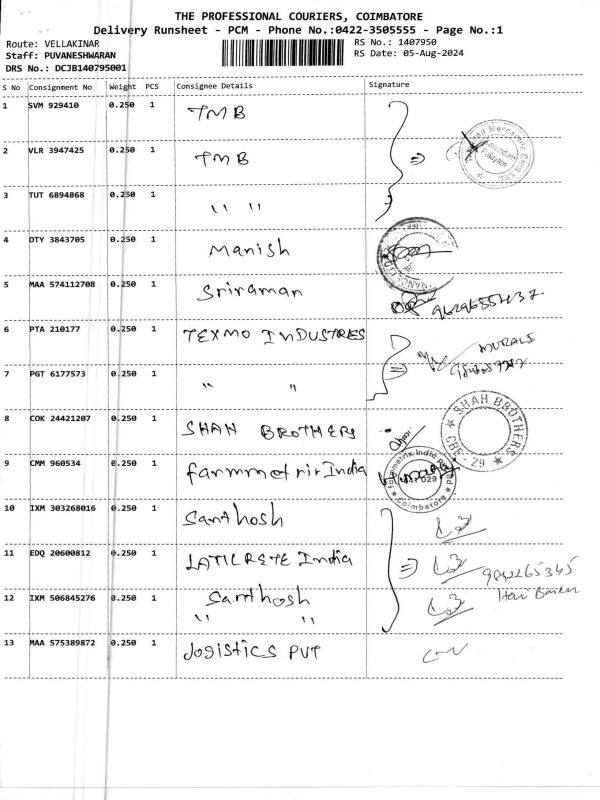 THE PROFESSIONAL COURIERS, COIMBATORE
Delivery Runsheet - PCM - Phone No.:0422-3505555 - Page No.:1
Route: VELLAKINAR
RS No.: 1407950
Staff: PUVANESHWARAN
RS Date: 05-Aug-2024
DRS No.: DCJB140795001
S No Consignment No Weight PCS Consignee Details Signature
1 SVM 929410 0.250 1 TMB
2 VLR 3947425 0.250 1 TMB
3 TUT 6894868 0.250 1 " "
4 DTY 3843705 0.250 1 Manish
5 MAA 574112708 0.250 1 Sriraman
6 PTA 210177 0.250 1 TEXMO INDUSTRES
7 PGT 6177573 0.250 1 " "
8 COK 24421207 0.250 1 SHAH BROTHERS
SHAH BROTHERS CBE - 29
9 CMM 960534 0.250 1 India
Coimbatore
10 IXM 303268016 0.250 1 Santhosh
11 EDQ 20600812 0.250 1 LATICRETE India
9842265345
12 IXM 506845276 0.250 1 Santhosh
" "
13 MAA 575389872 0.250 1 Jogistics PVT